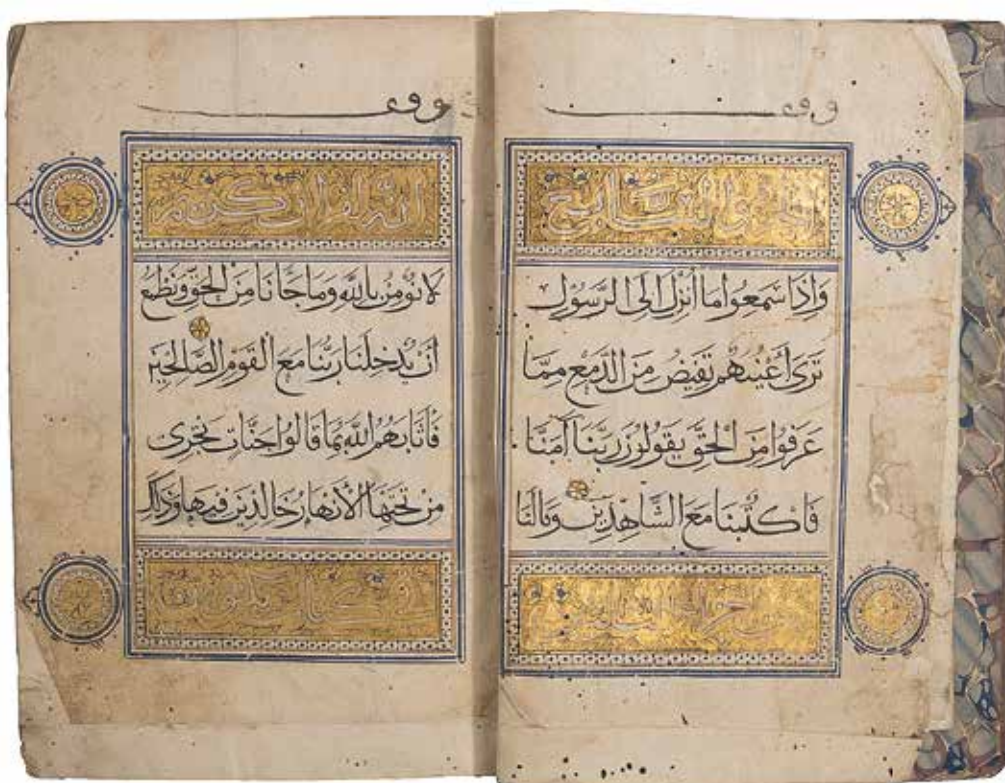 وقف
السابع
وَإِذَا سَمِعُوا مَا أُنْزِلَ إِلَى الرَّسُولِ
تَرَى أَعْيُنَهُمْ تَفِيضُ مِنَ الدَّمْعِ مِمَّا
عَرَفُوا مِنَ الْحَقِّ يَقُولُونَ رَبَّنَا آمَنَّا
فَاكْتُبْنَا مَعَ الشَّاهِدِينَ وَمَالَنَا
من
وقف
انه لقران كريم
لَا نُؤْمِنُ بِاللَّهِ وَمَا جَانَا مِنَ الْحَقِّ وَنَطْمَعُ
أَنْ يُدْخِلَنَا رَبُّنَا مَعَ الْقَوْمِ الصَّالِحِينَ
فَأَثَابَهُمُ اللَّهُ بِمَا قَالُوا جَنَّاتٍ تَجْرِي
مِنْ تَحْتِهَا الْأَنْهَارُ خَالِدِينَ فِيهَا وَذَلِكَ
في كتاب مكنون